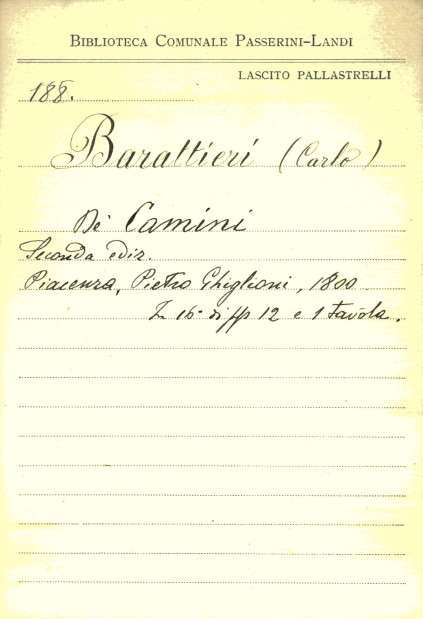 BIBLIOTECA COMUNALE PASSERINI-LANDI
LASCITO PALLASTRELLI
188.
Barattieri (Carlo)
De' Camini
Seconda ediz.
Piacenza, Pietro Ghiglioni, 1800
In 16° di pp 12 e 1 Tavola.